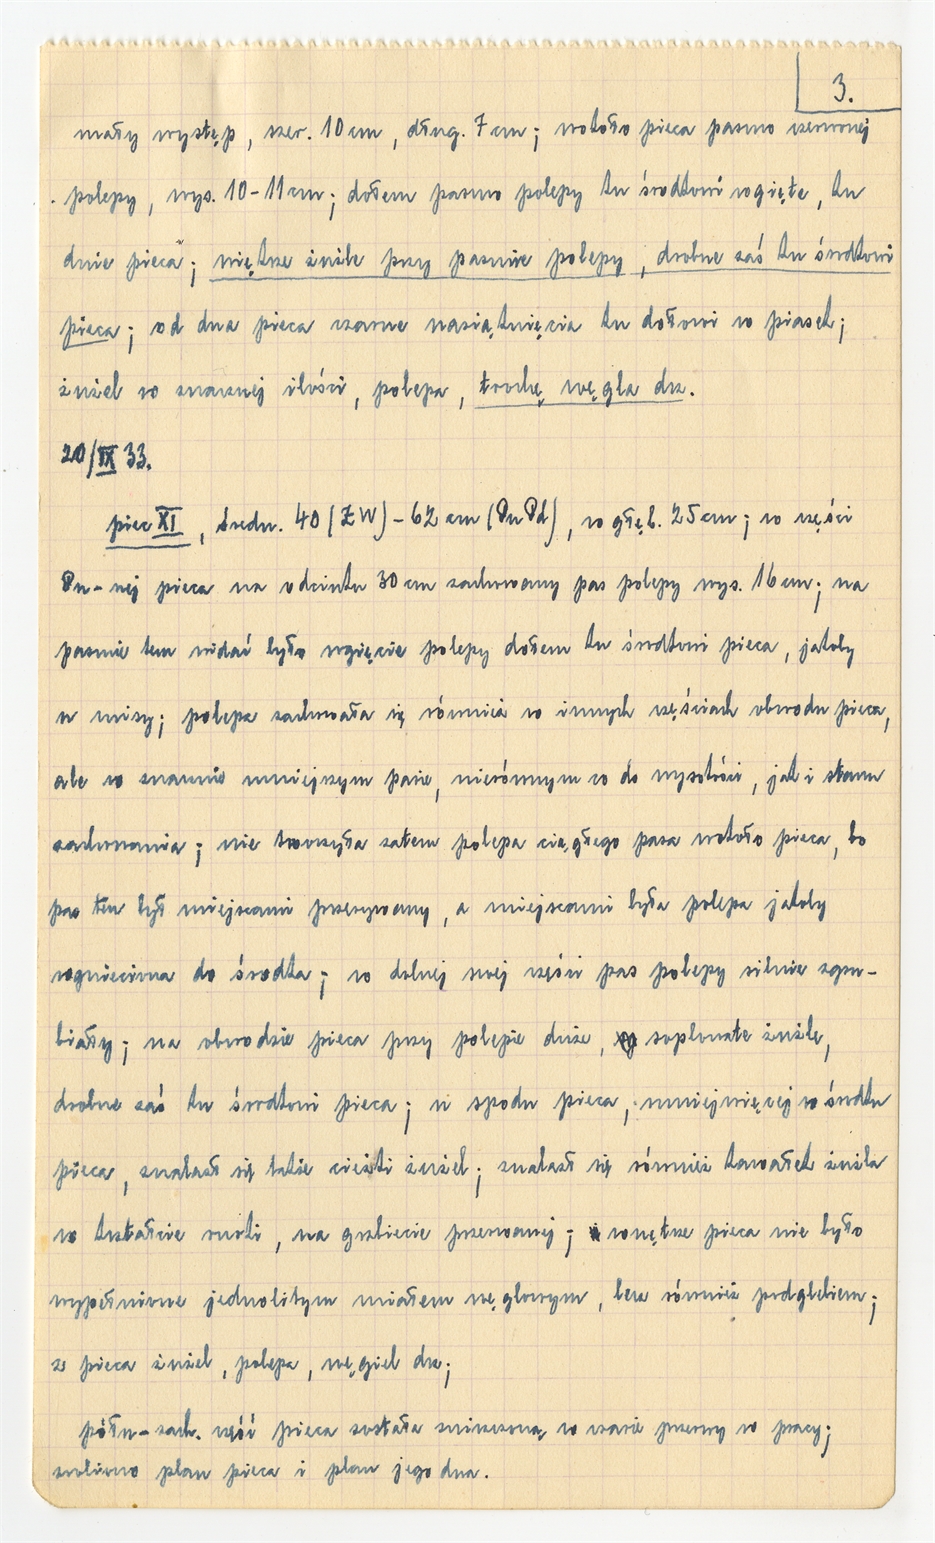 3.
mały występ, szer. 10 cm, dług. 7 cm; wokoło pieca pasmo czerwonej
polepy, wys. 10-11 cm; dołem pasmo polepy ku środkowi wgięte, ku
dnie pieca"; większe żużle przy paśmie polepy, drobne zaś ku środkowi
pieca; od dna pieca czarne nasiąknięcia ku dołowi w piasek;
żużel w znacznej ilości, polepa, trochę węgla drz.
20/IX 33.
piec XI, średn. 40 (ZW) - 62 cm (Pn Pd), w głęb. 25 cm; w części
Pn-nej pieca na odcinku 30 cm zachowany pas polepy wys. 16 cm; na
paśmie tem widać było wgięcie polepy dołem ku środkowi pieca, jakoby
w misy; polepa zachowała się również w innych częściach obwodu pieca,
ale w znacznie mniejszym pasie, nierównym co do wysokości, jak i stanu
zachowania; nie tworzyła zatem polepa ciągłego pasa wokoło pieca, bo
pas ten był miejscami przerywany, a miejscami była polepa jakoby
wgnieciona do środka; w dolnej swej części pas polepy silnie zgru-
biały; na obwodzie pieca przy polepie duże, soplowate żużle,
drobne zaś ku środkowi pieca; u spodu pieca, mniejwięcej w środku
pieca, znalazł się także ciężki żużel; znalazł się również kawałek żużla
w kształcie rurki, na grzbiecie przerwanej; wnętrze pieca nie było
wypełnione jednolitym miałem węglowym, lecz również podglebiem;
z pieca żużel, polepa, węgiel drz;
półn-zach. część pieca została zniszczona, w czasie przerwy w pracy;
zrobiono plan pieca i plan jego dna.